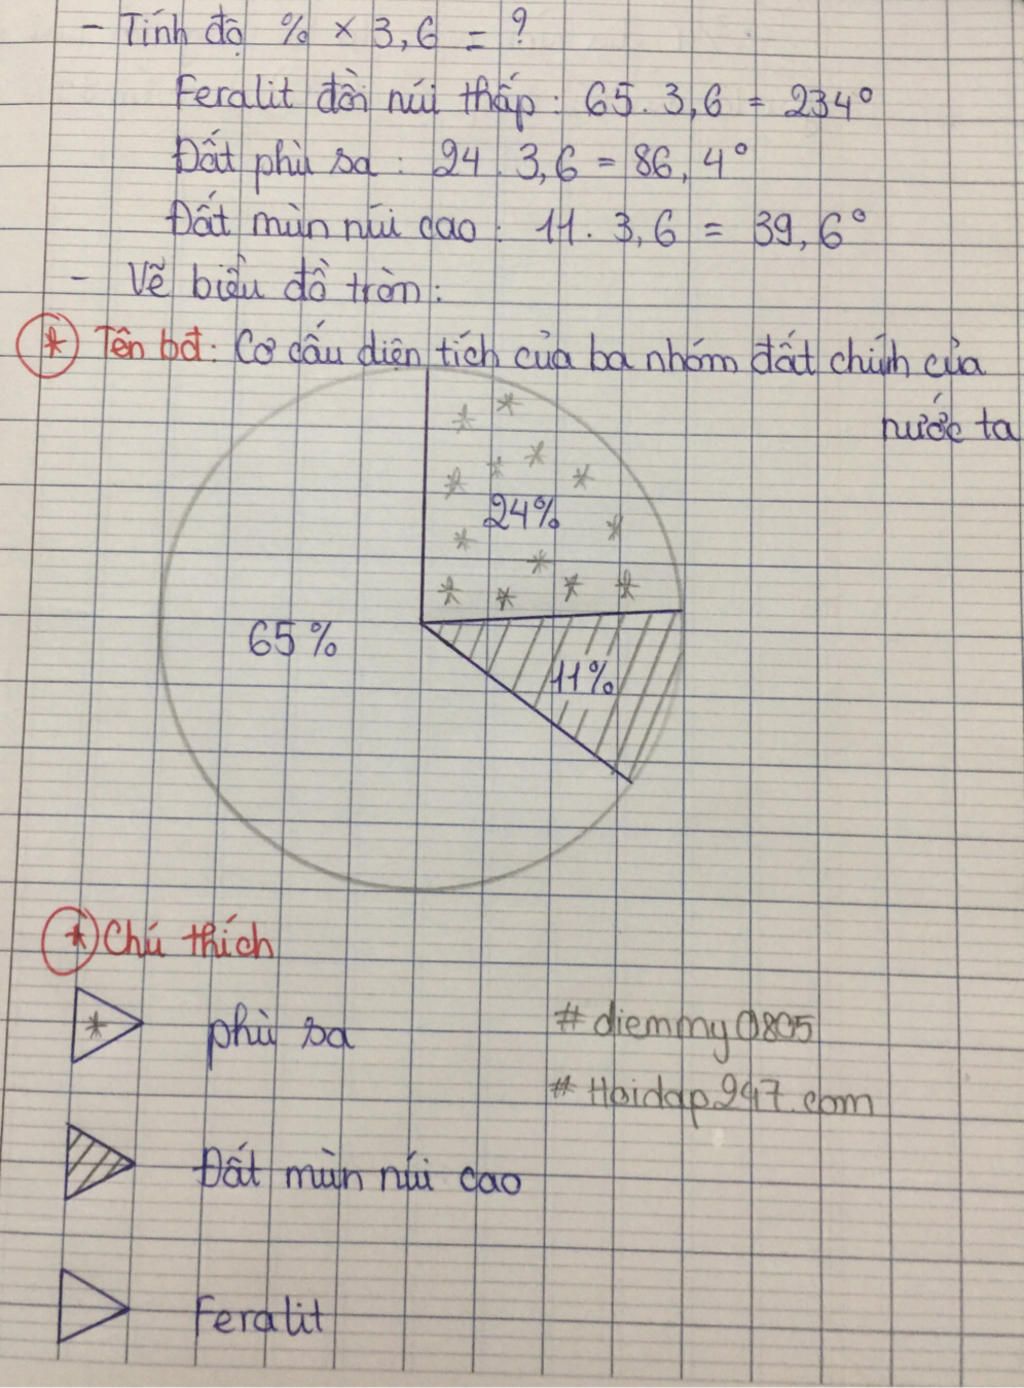 - Tính độ % × 3,6 = ?
Feralit đồi núi thấp: 65 . 3,6 = 234°
Đất phù sa: 24 . 3,6 = 86,4°
Đất mùn núi cao: 11 . 3,6 = 39,6°
- Vẽ biểu đồ tròn:
* Tên bđ: Cơ cấu diện tích của ba nhóm đất chính của
nước ta
24%
65%
11%
* Chú thích
phù sa
#diemmy0805
#Hoidap247.com
Đất mùn núi cao
Feralit